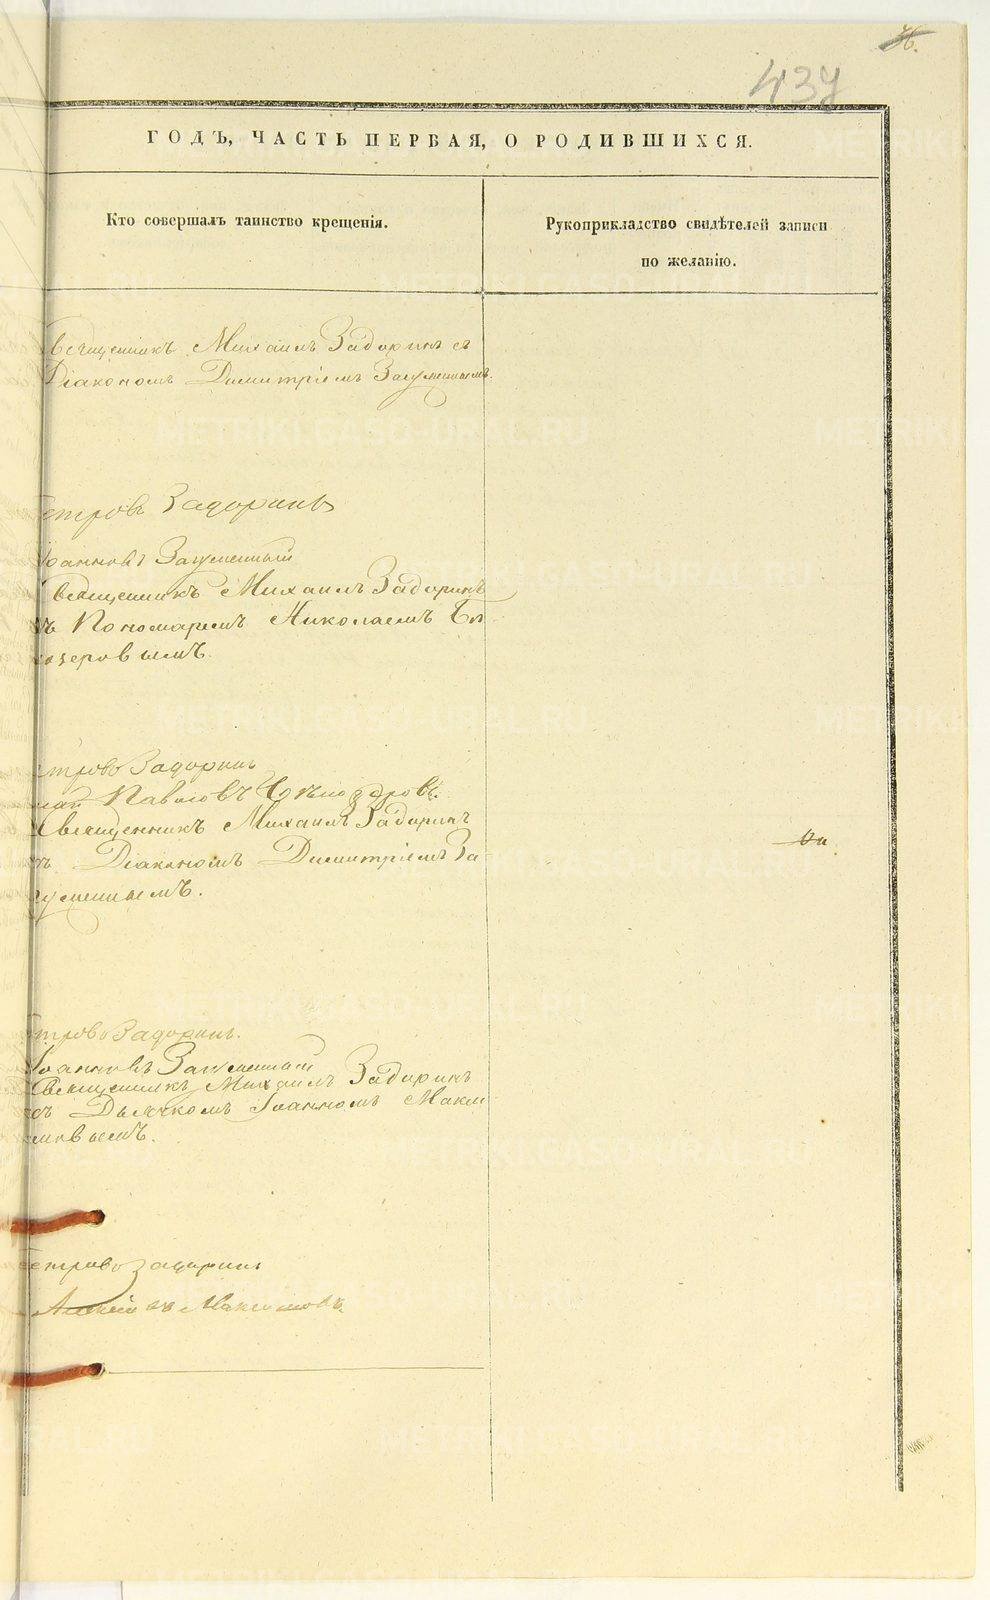 36.
437
ГОДЪ, ЧАСТЬ ПЕРВАЯ, О РОДИВШИХСЯ.
Кто совершалъ таинство крещенія.
Рукоприкладство свидѣтелей записи
по желанію.
Священникъ Михаилъ Задоринъ съ
Діакономъ Димитріемъ Загуменнымъ.
Петровъ Задоринъ
Іоанновъ Загуменный
Священникъ Михаилъ Задоринъ
съ Пономаремъ Николаемъ Бѣ
лозеровымъ.
Петровъ Задоринъ
Павловъ Бѣлозеровъ.
Священникъ Михаилъ Задоринъ
съ Діакономъ Димитріемъ За
гуменнымъ.
Петровъ Задоринъ.
Іоанновъ Загуменный
Священникъ Михаилъ Задоринъ
съ Дьячкомъ Іоанномъ Макси
мовымъ.
Петровъ Задоринъ
Максимовъ
METRIKI.GASO-URAL.RU